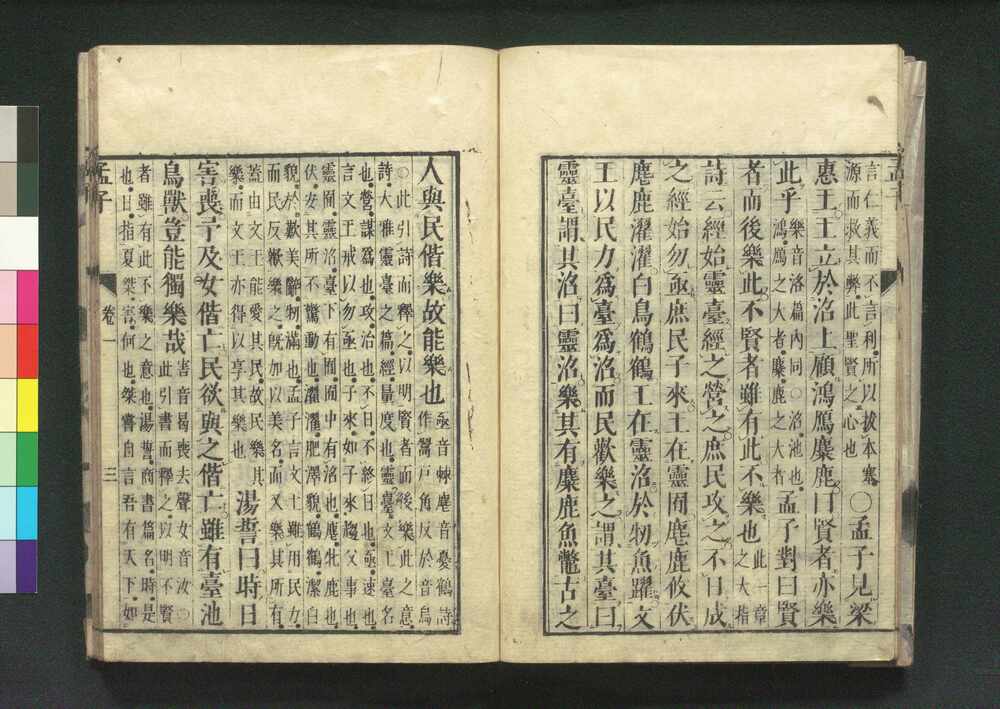 孟子
言仁義而不言利所以拔本塞
源而救其弊此聖賢之心也
○孟子見梁
惠王王立於沼上顧鴻鴈麋鹿曰賢者亦樂
此乎
樂音洛篇內同○沼池也
鴻鴈之大者麋鹿之大者
孟子對曰賢
者而後樂此不賢者雖有此不樂也
此一章
之大指
詩云經始靈臺經之營之庶民攻之不日成
之經始勿亟庶民子來王在靈囿麀鹿攸伏
麀鹿濯濯白鳥鶴鶴王在靈沼於牣魚躍文
王以民力爲臺爲沼而民歡樂之謂其臺曰
靈臺謂其沼曰靈沼樂其有麋鹿魚鼈古之
人與民偕樂故能樂也
亟音棘麀音憂鶴詩
作翯戶角反於音烏
○此引詩而釋之以明賢者而後樂此之意
詩大雅靈臺之篇經量度也靈臺文王臺名
也營謀爲也攻治也不日不終日也亟速也
言文王戒以勿亟也子來如子來趨父事也
靈囿靈沼臺下有囿囿中有沼也麀牝鹿也
伏安其所不驚動也濯濯肥澤貌鶴鶴潔白
貌於歎美辭牣滿也孟子言文王雖用民力
而民反歡樂之旣加以美名而又樂其所有
蓋由文王能愛其民故民樂其
樂而文王亦得以享其樂也
湯誓曰時日
害喪予及女偕亡民欲與之偕亡雖有臺池
鳥獸豈能獨樂哉
害音曷喪去聲女音汝○
此引書而釋之以明不賢
者雖有此不樂之意也湯誓商書篇名時是
也日指夏桀害何也桀嘗自言吾有天下如
孟子
卷一
三